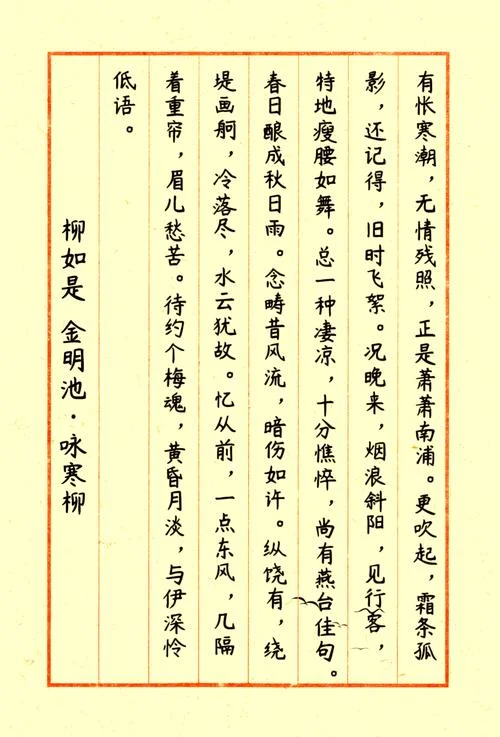 有怅寒潮，无情残照，正是萧萧南浦。更吹起，霜条孤
影，还记得，旧时飞絮。况晚来，烟浪斜阳，见行客，
特地瘦腰如舞。总一种凄凉，十分憔悴，尚有燕台佳句。
春日酿成秋日雨。念畴昔风流，暗伤如许。纵饶有，绕
堤画舸，冷落尽，水云犹故。忆从前，一点东风，几隔
着重帘，眉儿愁苦。待约个梅魂，黄昏月淡，与伊深怜
低语。
柳如是 金明池·咏寒柳